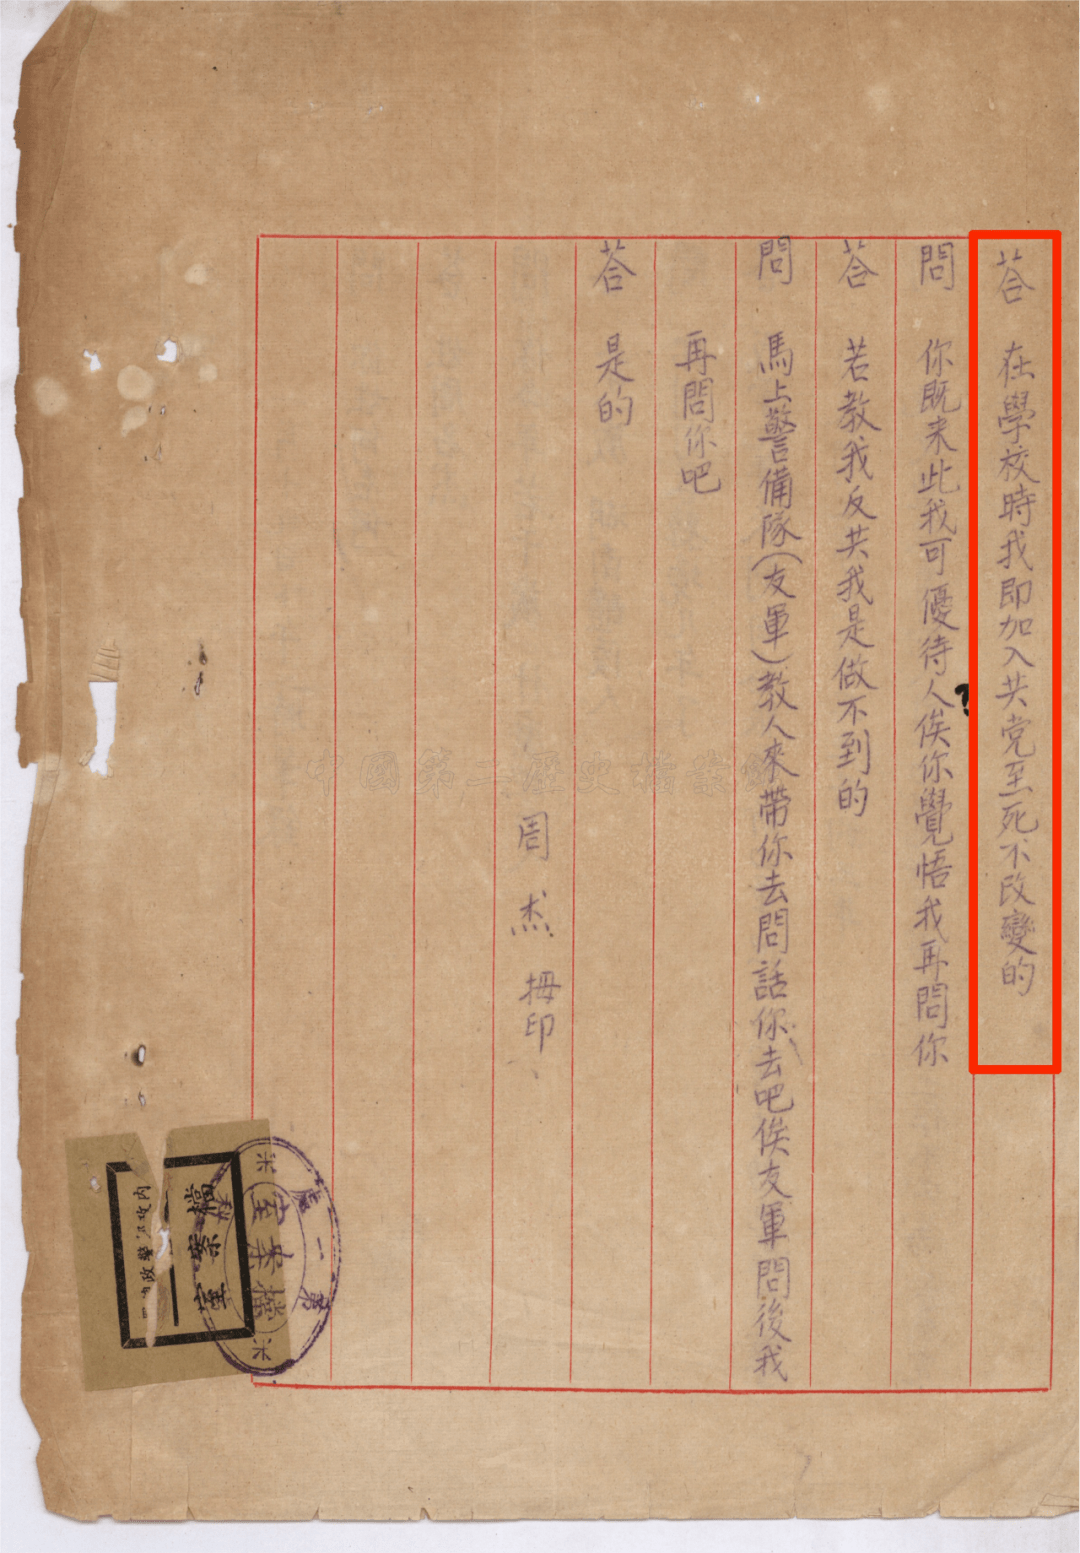 荅 在學校時我即加入共党至死不改變的
問 你既来此我可優待人俟你覺悟我再問你
荅 若教我反共我是做不到的
問 馬上警備隊(友軍)教人來帶你去問話你去吧俟友軍問後我
再問你吧
荅 是的
周杰 拇印
中國第二歷史檔案館
檔案室